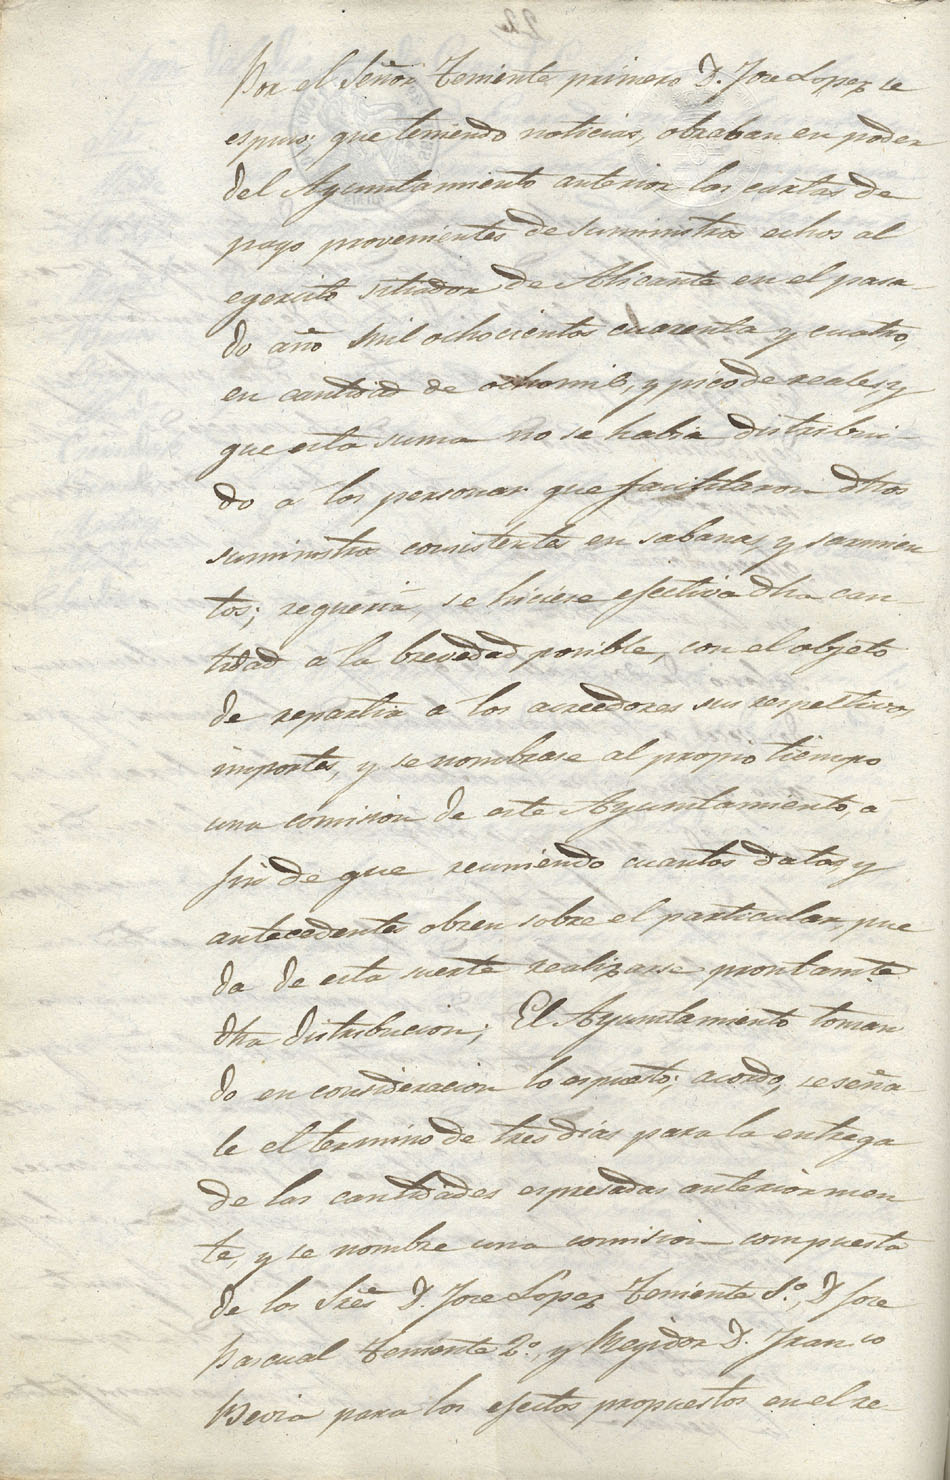 Por el Señor Teniente primero D. Jose Lopez se
espuso: que teniendo noticias, obraban en poder
del Ayuntamiento anterior las cartas de
pago provenientes de suministros echos al
egercito sitiador de Alicante en el pasa-
do año mil ochocientos cuarenta y cuatro,
en cantidad de ochomil, y pico de reales y
que esta suma no se habia distribui-
do a las personas que facilitaron dhos
suministros consistentes en sabanas y sarmien
tos; requeria, se hiciese efectiva dha can-
tidad a la brevedad posible, con el objeto
de repartir a los acreedores sus respectivos
importes, y se nombrase al propio tiempo
una comision de este Ayuntamiento, á
fin de que reuniendo cuantos datos y
antecedentes obren sobre el particular, pue
da de esta suerte realizarse prontamte
dha distribucion; El Ayuntamiento toman
do en consideracion lo espuesto; acordó, se seña
le el termino de tres dias para la entrega
de las cantidades espresadas anteriormen
te, y se nombre una comision compuesta
de los Sres D. Jose Lopez Teniente 1.º, D Jose
Pascual Teniente 2.º, y Regidor D. Franco
para los efectos propuestos en el re-